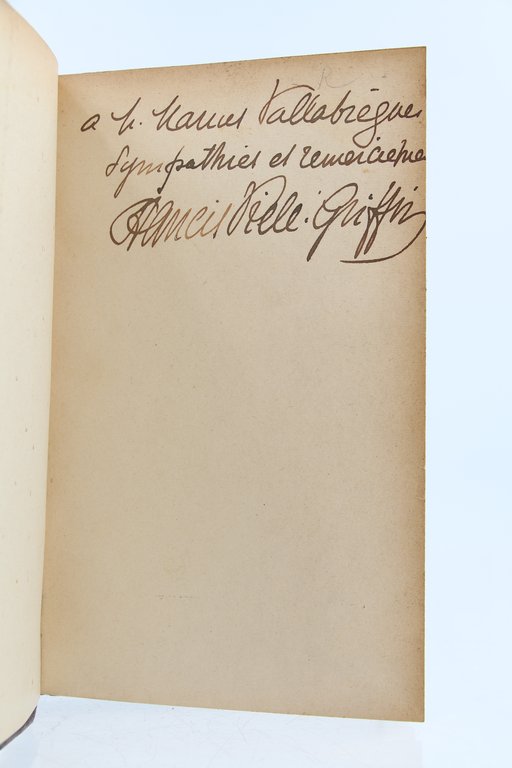 a M. Marius Vallabrègues
Sympathies et remerciéme
Francis Vielé-Griffin